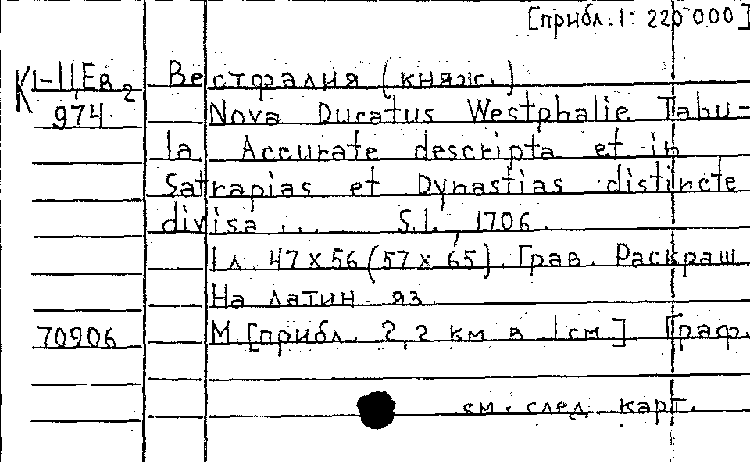 [прибл. 1: 220 000]
К 1-II, Ев 2 Вестфалия (княж.)
974 Nova Ducatus Westphalie Tabu-
la Accurate descripta et in
Satrapias et Dynastias distincte
divisa ... S.l., 1706.
1 л. 47 x 56 (57 x 65). Грав. Раскраш.
На латин. яз.
70906 М [прибл. 2,2 км в 1 см] Граф.
см. след. карт.